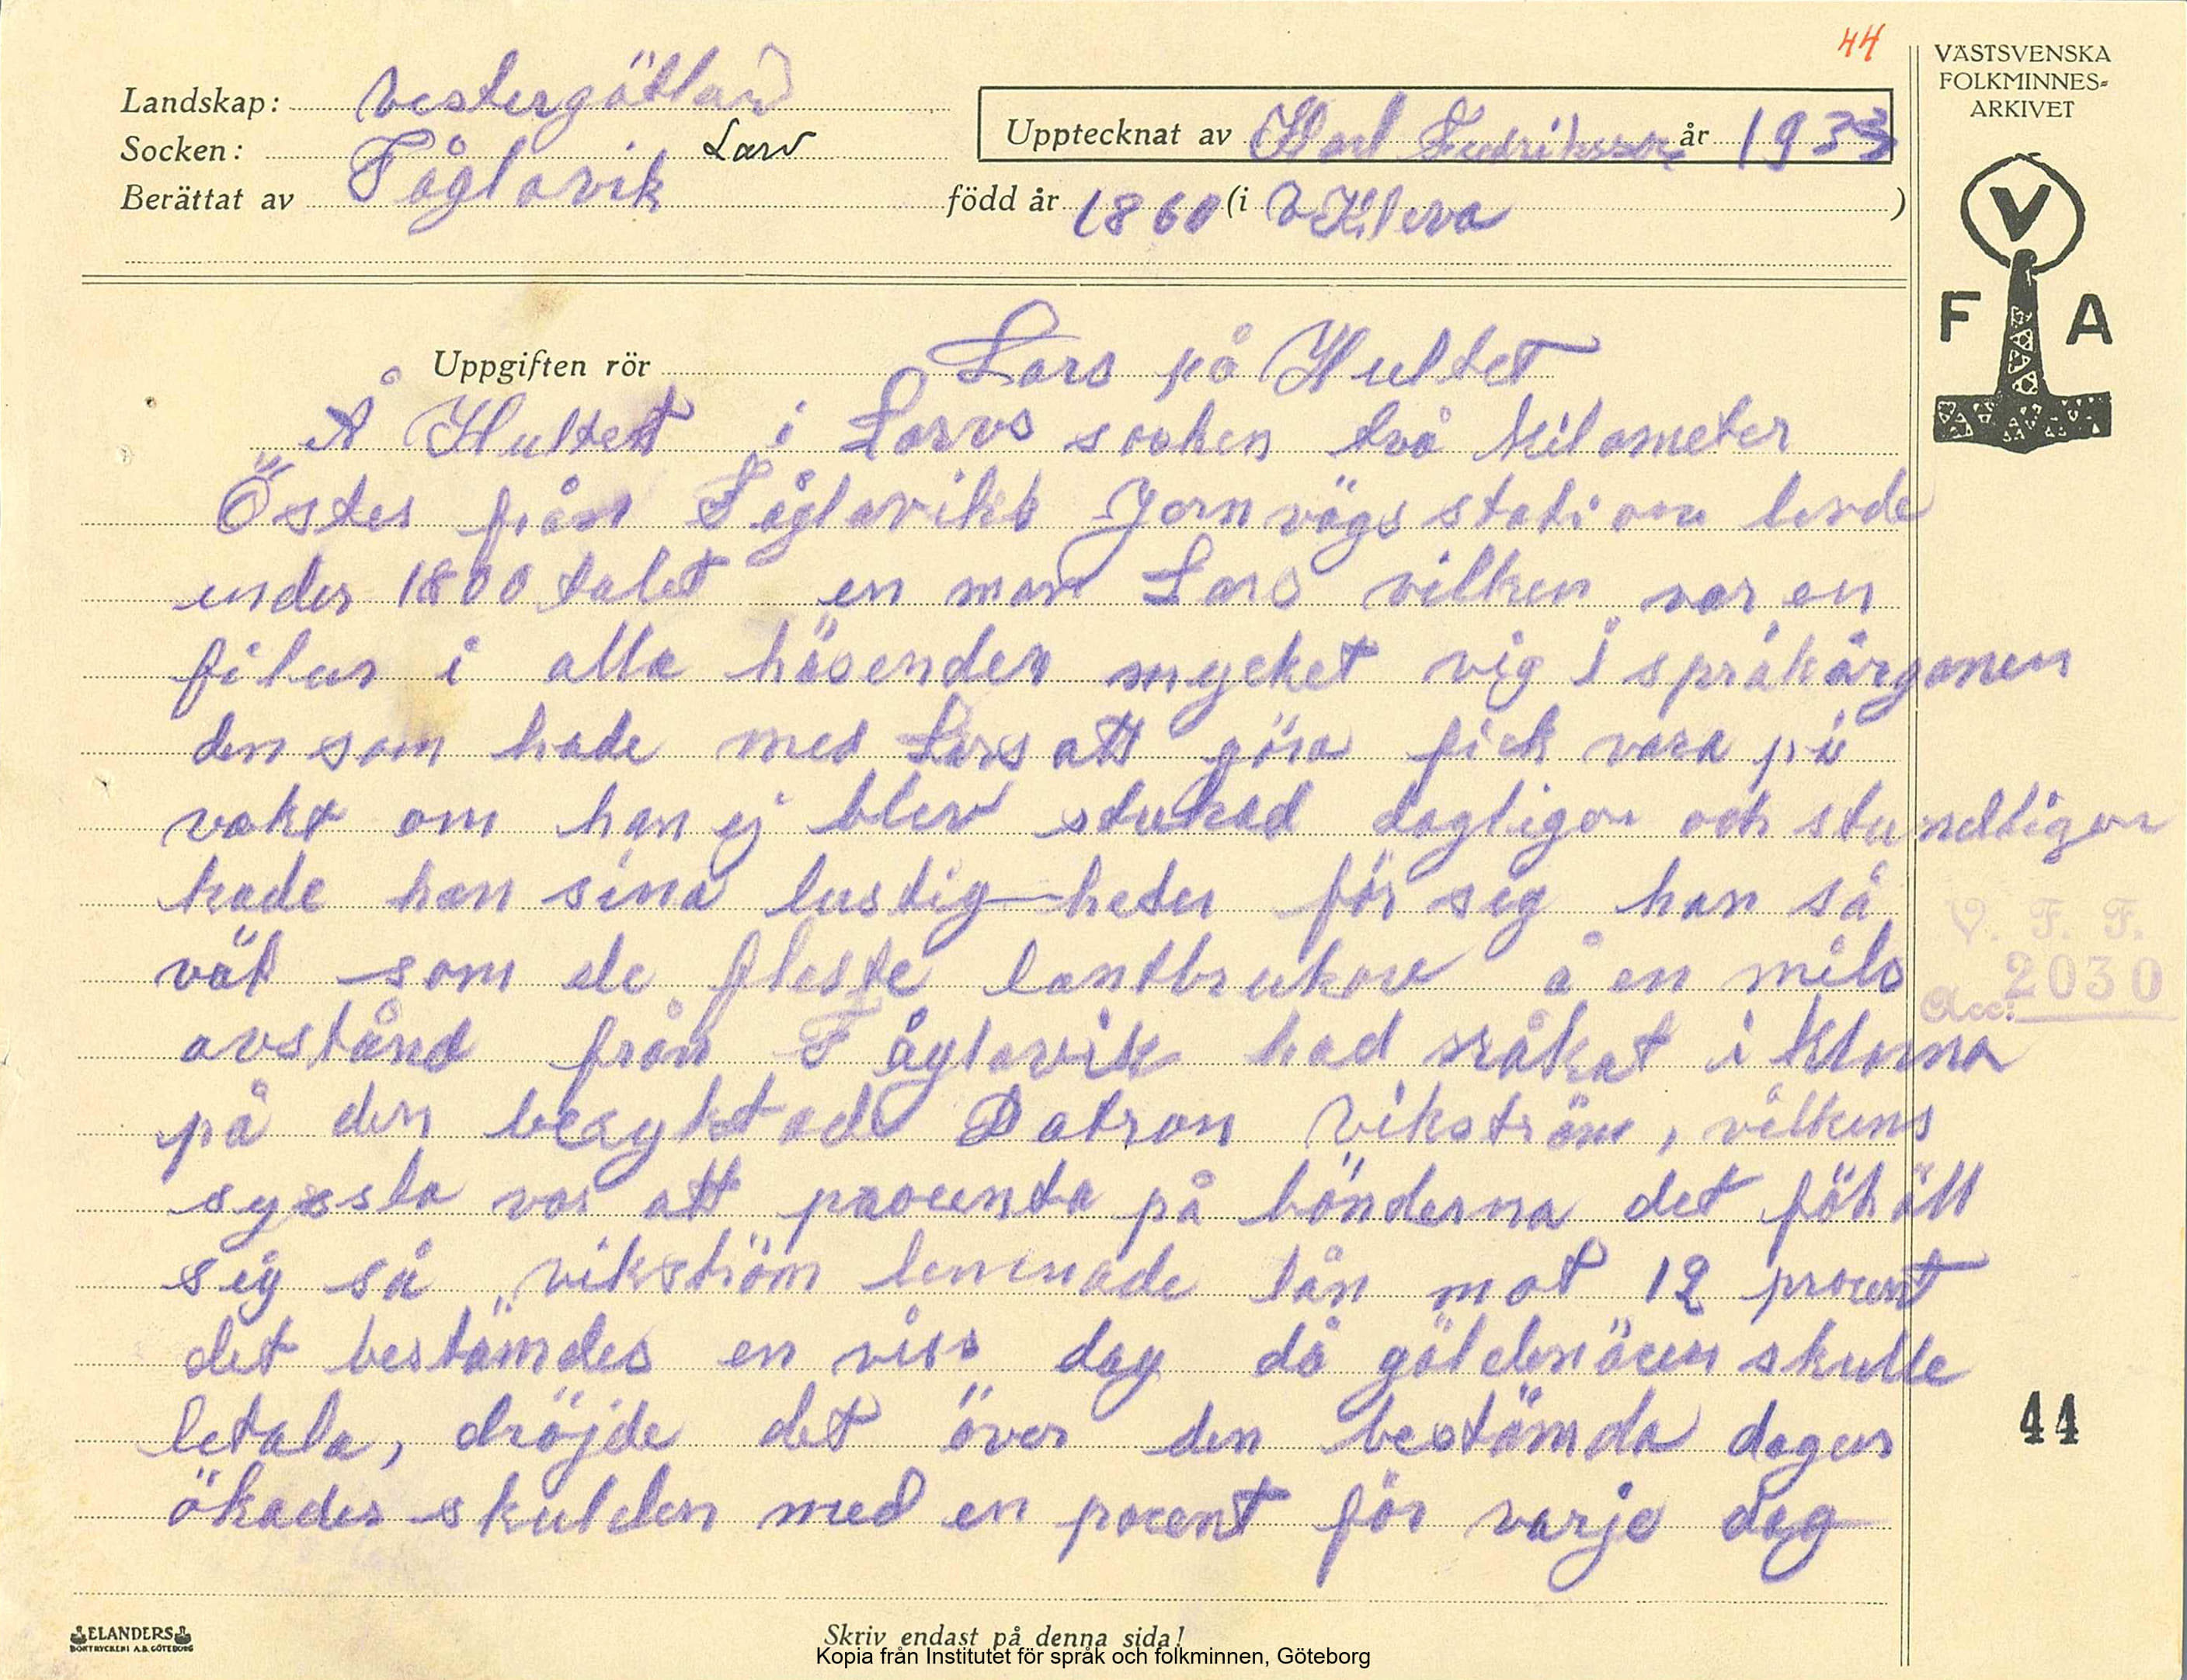 44
VÄSTSVENSKA
FOLKMINNES=
ARKIVET
Landskap: Vestergötland
Socken: Fåglavik Larv
Upptecknat av Karl Fredriksson år 1933
Berättat av född år 1860 (i V Kleva)
V
F A
Uppgiften rör Lars på Hultet
Å Hultet i Larvs socken två kilometer
Öster från Fåglaviks Jernvägs station levde
under 1800 talet en man Lars vilken var en
filur i alla hösender mycket vig i språkårganen
den som hade med Lars att göra fick vara på
vakt om han ej blev stukad dagligen och stundligen
hade han sina lustig-heter för sig han så
väl som de fleste lantbrukare å en mils
avstånd från Fåglavik had råkat i Klorna
på den beryktade Patron Vikström, vilkens
syssla var att procenta på bönderna det föhöll
sig så vikström lemnade lån mot 12 procent
det bestämdes en viss dag då göldenären skulle
betala, dröjde det över den bestämda dagen
ökades skulden med en procent för varje dag
V. F. F.
Acc: 2030
44
ELANDERS
BOKTRYCKERI A.B. GÖTEBORG
Skriv endast på denna sida!
Kopia från Institutet för språk och folkminnen, Göteborg